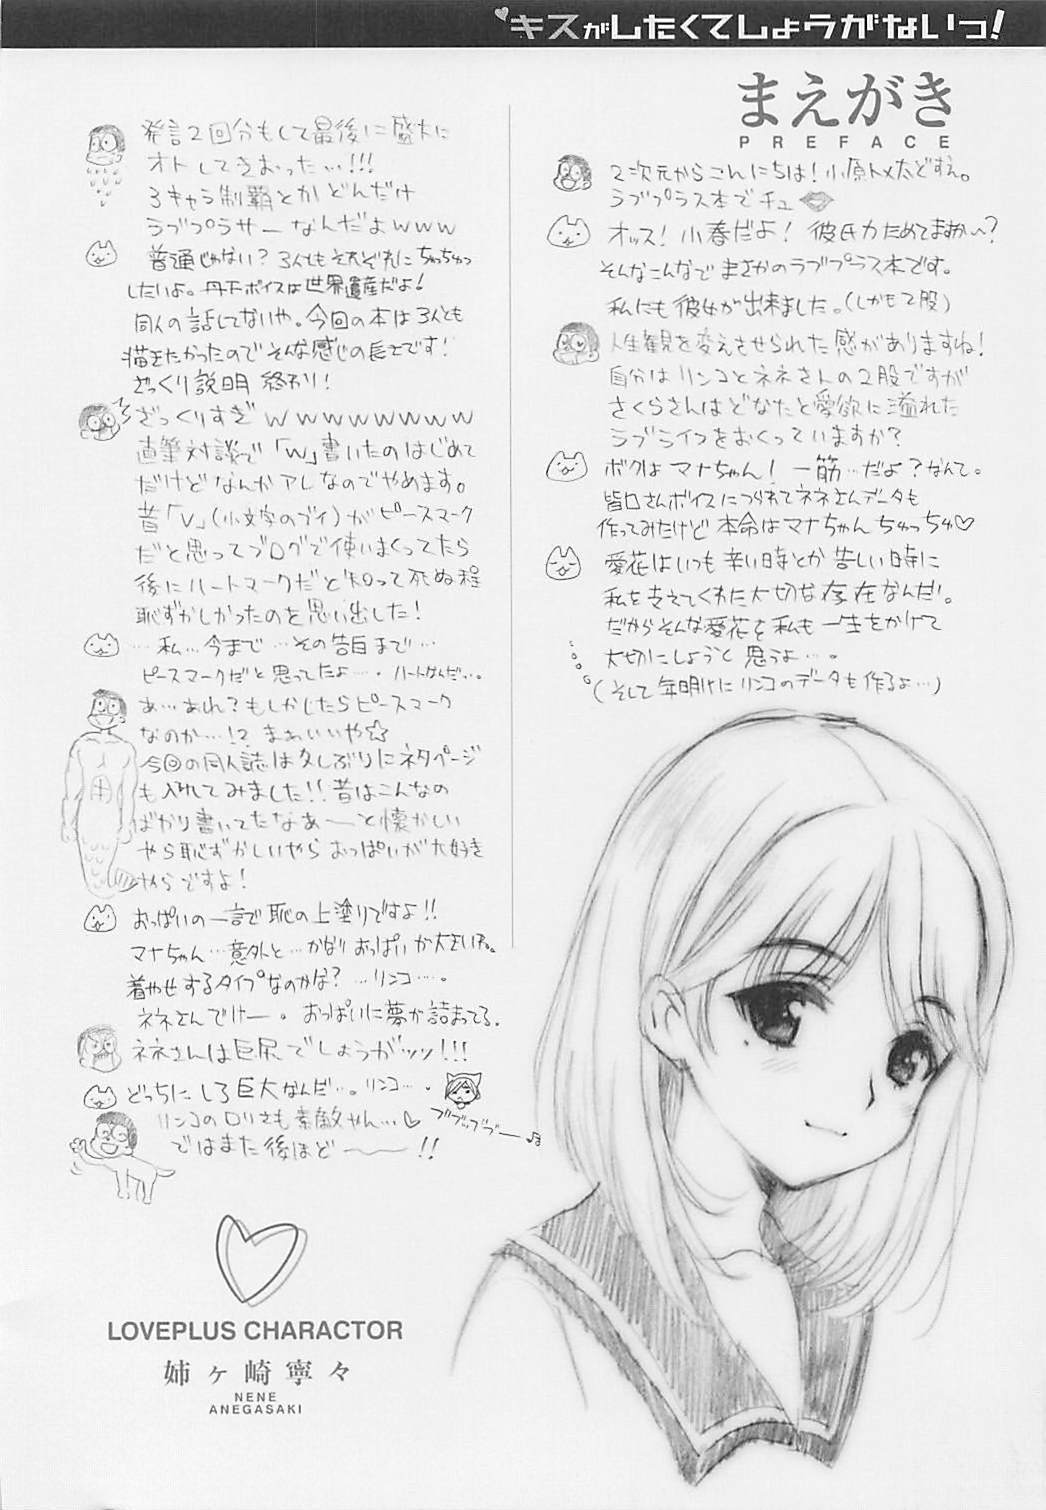 キスがしたくてしょうがないっ!
まえがき
PREFACE
2次元からこんにちは!小原トメ太どすぇ。
ラブプラス本でチュ
オッス!小春だよ!彼氏力ためてますか〜?
そんなこんなでまさかのラブプラス本です。
私にも彼女が出来ました。(しかも2股)
人生観を変えさせられた感がありますね!
自分はリンコとネネさんの2股ですが
さくらさんはどなたと愛欲に溢れた
ラブライフをおくっていますか?
ボクはマナちゃん!一筋…だよ?なんて。
皆口さんボイスにつられてネネさんデータも
作ってみたけど本命はマナちゃんちゅっちゅ♡
愛花はいつも辛い時とか苦しい時に
私を支えてくれた大切な存在なんだ。
だからそんな愛花を私も一生をかけて
大切にしようと思うよ…。
(そして年明けにリンコのデータも作るよ…)
発言2回分もして最後に盛大に
オトしてきおった…!!!
3キャラ制覇とかどんだけ
ラブプラサーなんだよwww
普通じゃない?3人ともそれぞれにちゅっちゅっ
したいよ。丹下ボイスは世界遺産だよ!
同人の話してないや。今回の本は3人とも
描きたかったのでそんな感じの長さです!
ざっくり説明終わり!
ざっくりすぎwwwwwwww
直筆対談で「w」書いたのはじめて
だけどなんかアレなのでやめます。
昔「v」(小文字のブイ)がピースマーク
だと思ってブログで使いまくってたら
後にハートマークだと知って死ぬ程
恥ずかしかったのを思い出した!
…私…今まで…その告白まで…
ピースマークだと思ってたよ…。ハートなんだ…。
あ…あれ?もしかしたらピースマーク
なのか…!?まぁいいや☆
今回の同人誌は久しぶりにネタページ
も入れてみました!!昔はこんなの
ばかり書いてたなあーと懐かしい
やら恥ずかしいやらおっぱいが大好き
やらですよ!
おっぱいの一言で恥の上塗りですよ!!
マナちゃん…意外と…かなりおっぱいが大きい子。
着やせするタイプなのかな?…リンコ…。
ネネさんでけー。おっぱいに夢が詰まってる。
ネネさんは巨尻でしょうがッッ!!!
どっちにしろ巨大なんだ…。リンコ…
リンコのロリさも素敵やん…♡
ブブッブブー♪
ではまた後ほど〜!!
LOVEPLUS CHARACTOR
姉ヶ崎寧々
NENE
ANEGASAKI